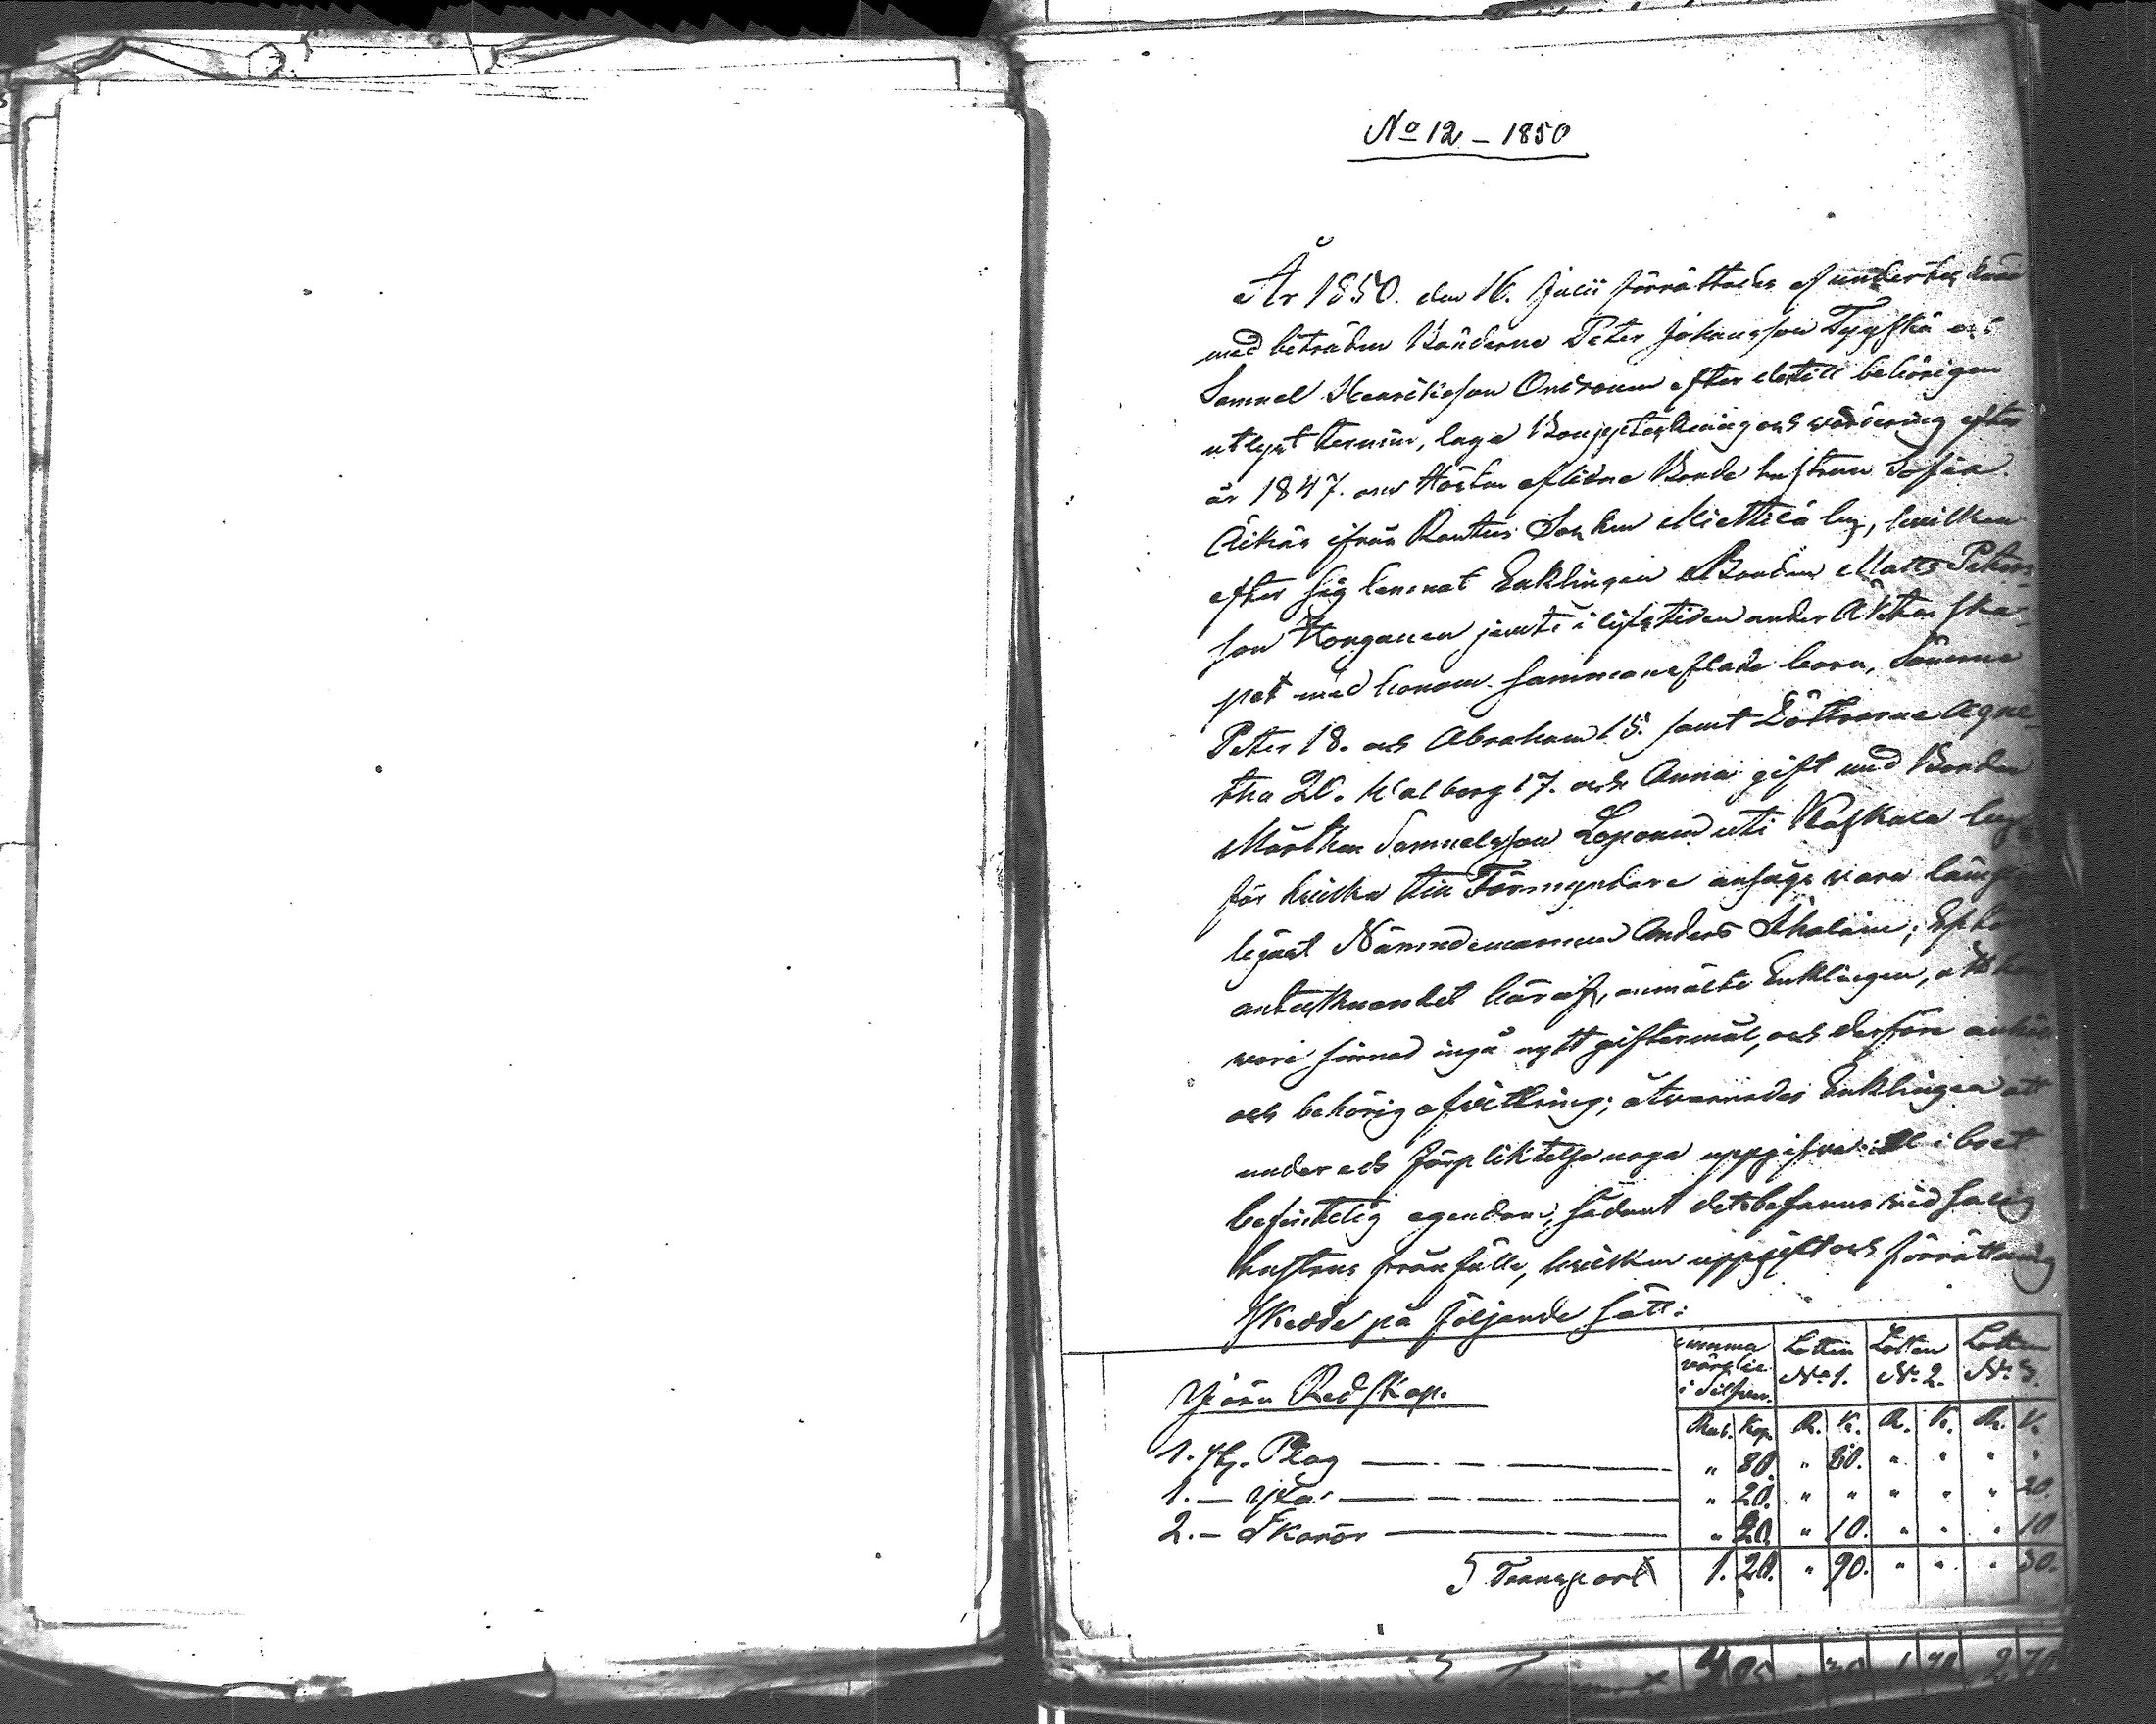 No 12 – 1850
År 1850. den 16. Julii förrättades af undertecknad
med biträden Bönderne Peter Johansson Tyyskä och
Samuel Henriksson Onttonen efter dertill behörigen
utlyst termin, laga Bouppteckning och värdering efter
år 1847. om Hösten aflidne Bonde hustrun Sofia
Äikäs ifrån Rautus Socken Miettilä by, hvilken
efter sig lemnat Enklingen Bonden Matts Peters-
son Konganen jemte i lifstiden under Äktenska-
pet med honom sammanaflade barn, Sönerne
Peter 18. och Abraham 15. samt Döttrarne Agne-
tha 20. Walborg 17. och Anna gift med Bonden
Mårthen Samuelsson Loponen uti Raskala by
för hvilka till Förmyndare ansågs vara
Nämndemannen Anders Ihalain; Efter
antecknandet häraf, anmälte Enklingen, att han
wore sinnad ingå nytt giftermål, och derföre
och behörig afvittring; åtvarnades Enklingen att
under eds förpliktelse noga uppgifva all i boet
befintelig egendom, sådant det befanns vid salig
hustruns frånfälle, hvilken uppgift och förrättning
skedde på följande sätt:
Summa värdie i Silfver. Lotten No 1. Lotten No 2. Lotten No 3.
Jern Redskap.
Rub. Kop. R. K. R. K. R. K.
1. st. Plog — " 80. " 80. " " " "
1. — Yxa — " 20. " " " " " 20.
2. — Skäror — " 20. " 10. " " " 10
Transport 1. 20. " 90. " " " 30.